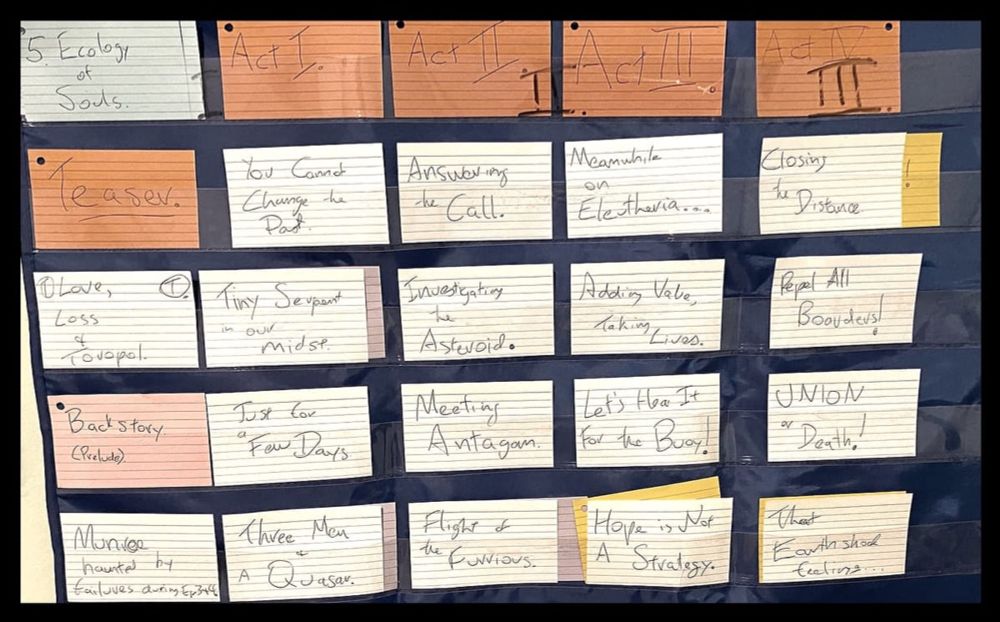 5. Ecology
of
Souls.
Act I.
Act II.
I.
Act III.
Act IV
III.
Teaser.
You Cannot
Change the
Past.
Answering
the Call.
Meanwhile
on
Eleutheria...
Closing
the Distance.
!
Love,
Loss
&
Tovopol.
T.
Tiny Serpent
in our
midst.
Investigating
the
Asteroid.
Adding Value,
Taking
Lives.
Repel All
Boarders!
Backstory.
(Prelude)
Just for
a
Few Days.
Meeting
Antagan.
Let's Hear It
for the Buoy!
UNION
or
Death!
Munroe
haunted by
failures during Ep 3&4
Three Men
+
A Quasar.
Flight of
the
Furrious.
Hope is Not
A Strategy.
That
Earthshock
feeling...